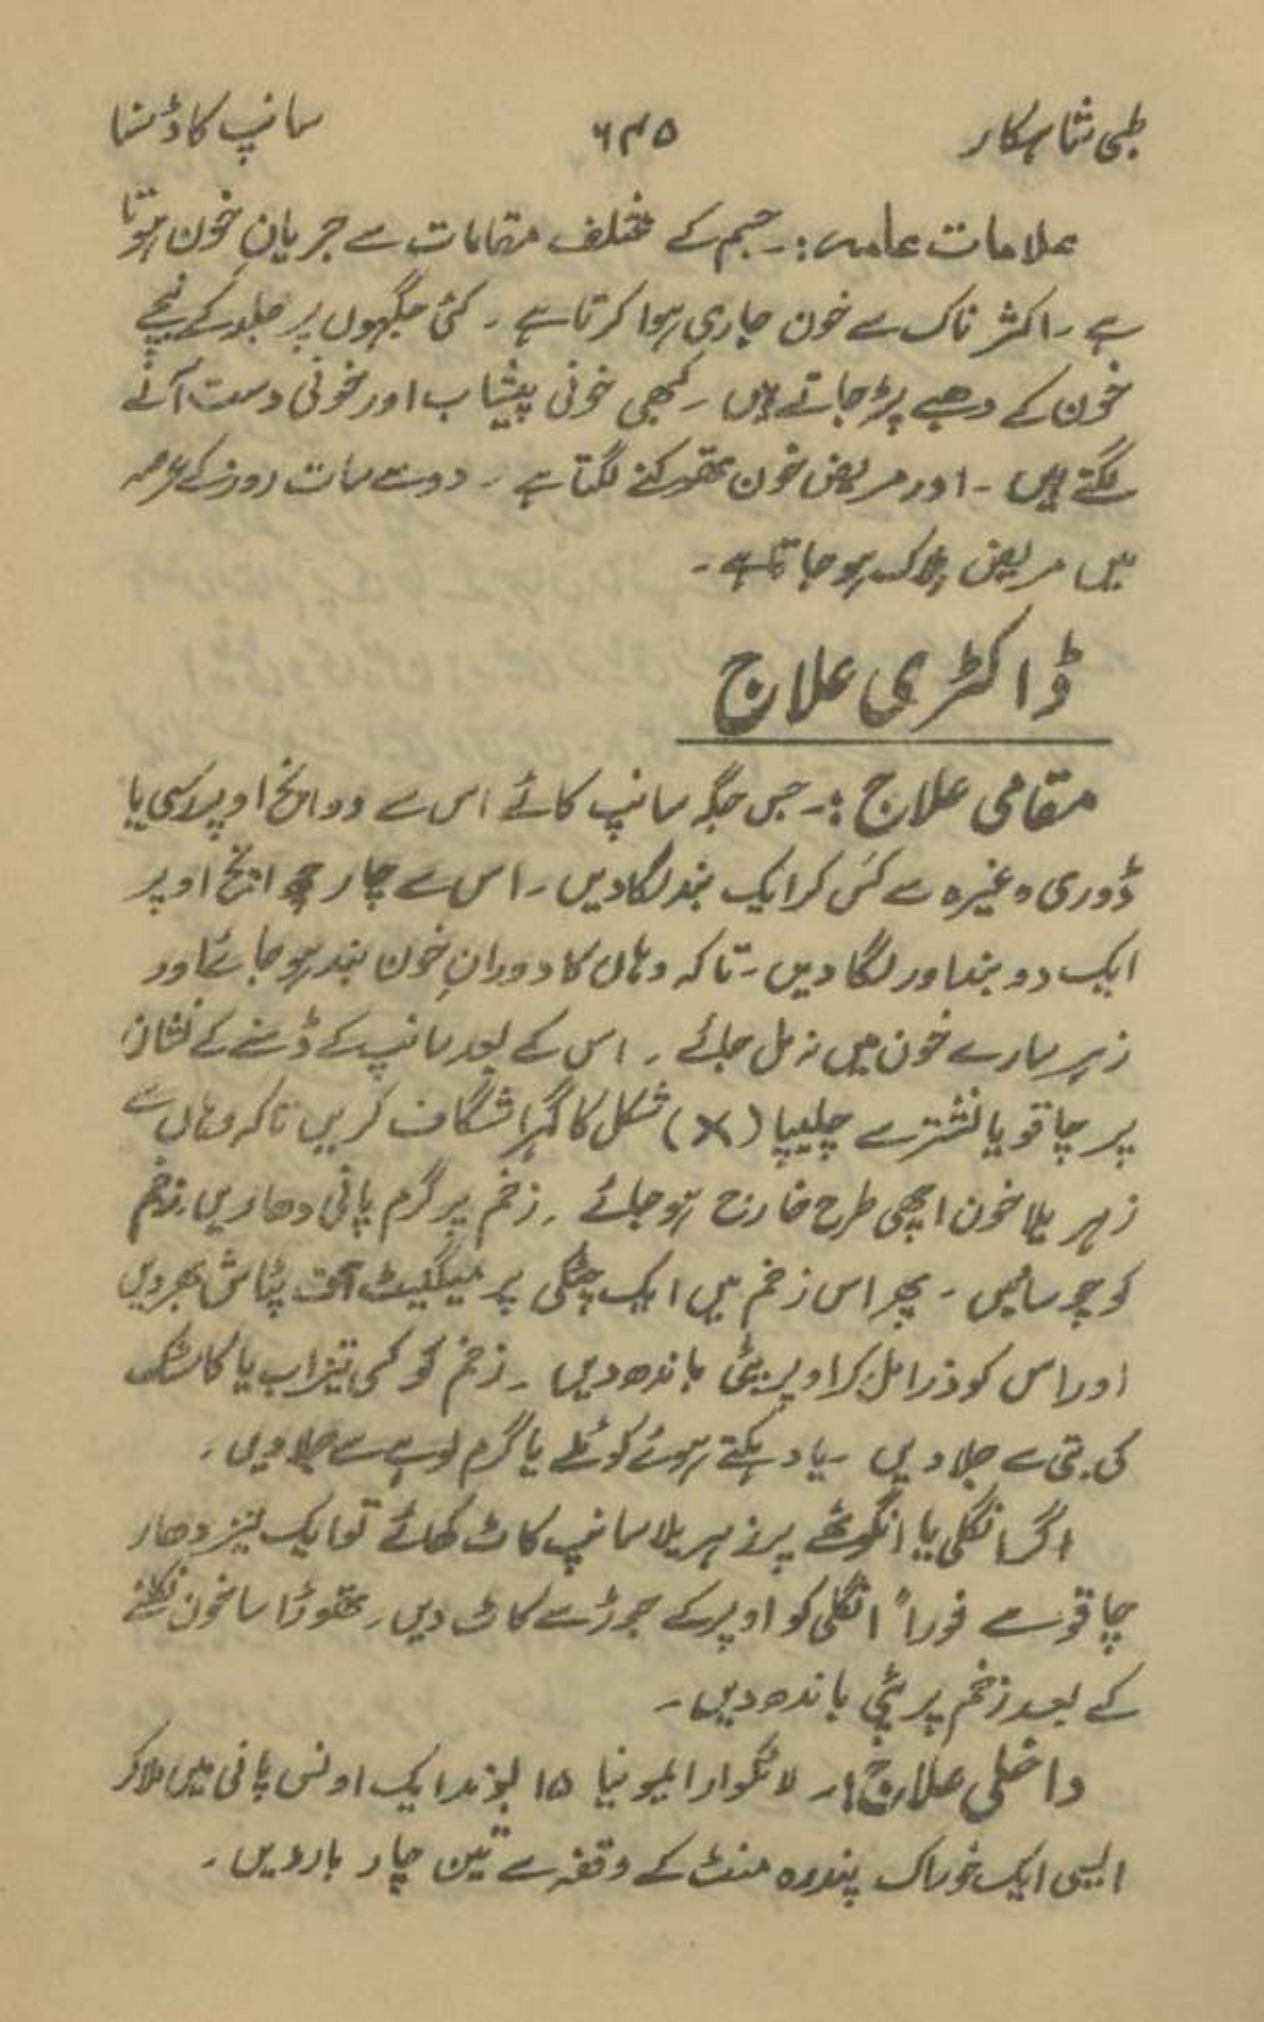 طبی شاہکار ۶۴۵ سانپ کا ڈسنا
علامات عامہ :۔ جسم کے مختلف مقامات سے جریانِ خون ہوتا
ہے ۔ اکثر ناک سے خون جاری ہوا کرتا ہے ۔ کئی جگہوں پر جلد کے نیچے
خون کے دھبے پڑ جاتے ہیں ۔ کبھی خونی پیشاب اور خونی دست آنے
لگتے ہیں ۔ اور مریض خون تھوکنے لگتا ہے ۔ دو سے سات روز کے عرصہ
میں مریض ہلاک ہو جاتا ہے ۔
ڈاکٹری علاج
مقامی علاج :۔ جس جگہ سانپ کاٹے اس سے دو انچ اوپر رسی یا
ڈوری وغیرہ سے کَس کر ایک بند لگا دیں ۔ اس سے چار چھ انچ اوپر
ایک دو بند اور لگا دیں ۔ تاکہ وہاں کا دورانِ خون بند ہو جائے اور
زہر سارے خون میں نہ مل جائے ۔ اس کے بعد سانپ کے ڈسنے کے نشان
پر چاقو یا نشتر سے چلیپا (×) شکل کا گہرا شگاف کریں تاکہ وہاں سے
زہریلا خون اچھی طرح خارج ہو جائے ۔ زخم پر گرم پانی دھاریں زخم
کو چوسائیں ۔ پھر اس زخم میں ایک چٹکی پر میگنیٹ آف پٹاش بھر دیں
اور اس کو ذرا مل کر اوپر پٹی باندھ دیں ۔ زخم کو کسی تیزاب یا کاسٹک
کی بتی سے جلا دیں ۔ یا دہکتے ہوئے کوئلے یا گرم لوہے سے جلا دیں ۔
اگر انگلی یا انگوٹھے پر زہریلا سانپ کاٹ کھائے تو ایک تیز دھار
چاقو سے فوراً انگلی کو اوپر کے جوڑ سے کاٹ دیں ۔ تھوڑا سا خون نکلنے
کے بعد زخم پر پٹی باندھ دیں ۔
داخلی علاج :۔ لائکوار ایمونیا ۱۵ بوند ایک اونس پانی میں ملا کر
ایسی ایک خوراک پندرہ منٹ کے وقفہ سے تین چار بار دیں ۔